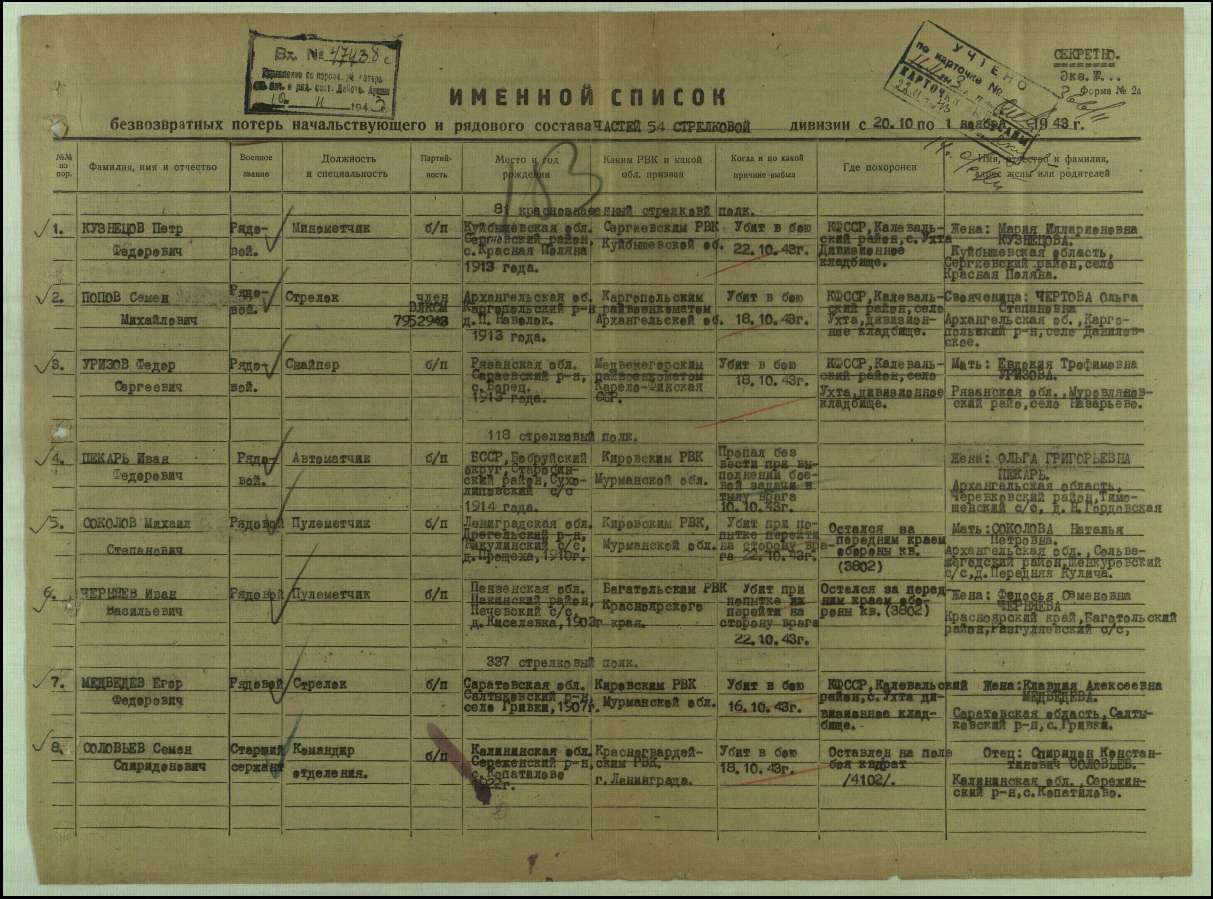 Вх. № 47438с
10 11 1943
УЧТЕНО
по карточке №
СЕКРЕТНО.
Экз.№...
Форма № 2а
ИМЕННОЙ СПИСОК
безвозвратных потерь начальствующего и рядового состава ЧАСТЕЙ 54 СТРЕЛКОВОЙ дивизии с 20.10 по 1 1943 г.
№№ по пор.
Фамилия, имя и отчество
Военное звание
Должность и специальность
Партийность
Место и год рождения
Каким РВК и какой обл. призван
Когда и по какой причине выбыл
Где похоронен
Имя, отчество и фамилия, адрес жены или родителей
183
81 краснознаменный стрелковй полк.
1. КУЗНЕЦОВ Петр
Федорович
Рядо-
вой.
Минометчик
б/п
Куйбышевская обл.
Сергиевский район,
с.Красная Поляна
1913 года.
Сергиевским РВК
Куйбышевской об.
Убит в бою
22.10.43г.
КФССР,Калеваль-
ский район,с.Ухта
Дивизионное
кладбище.
Жена: Мария Илларионовна
КУЗНЕЦОВА.
Куйбышевская область,
Сергиевский район,село
Красная Поляна.
2. ПОПОВ Семен
Михайлович
Рядо-
вой.
Стрелок
член
ВЛКСМ
7952943
Архангельская об.
Каргопольский р-н
д.П. Наволок.
1913 года.
Каргопольским
райвоенкоматом
Архангельской об.
Убит в бою
18.10.43г.
КФССР,Калеваль-
ский район,село
Ухта,дивизион-
ное кладбище.
Свояченица: ЧЕРТОВА Ольга
Степановна
Архангельская об.,Карго-
польский р-н,село Данилов-
ское.
3. УРИЗОВ Федор
Сергеевич
Рядо-
вой.
Снайпер
б/п
Рязанская обл.
Сараевский р-н,
с.Борец.
1913 года.
Медвежегорским
райвоенкоматом
Карело-Финская
ССР.
Убит в бою
18.10.43г.
КФССР,Калеваль-
ский район,село
Ухта,дивизионное
кладбище.
Мать: Евдокия Трофимовна
УРИЗОВА.
Рязанская обл.,Муровлянов-
ский райо,село Назарьево.
118 стрелковый полк.
4. ПЕКАРЬ Иван
Федорович
Рядо-
вой.
Автоматчик
б/п
БССР,Бобруйский
округ,Старосин-
ский район,Сухо-
липовский с/с
1914 года.
Кировским РВК
Мурманской обл.
Пропал без
вести при вы-
полнении бое-
вой задачи в
тылу врага
10.10.43г.
Жена: ОЛЬГА ГРИГОРЬЕВНА
ПЕКАРЬ.
Архангельская область,
Черевковский район,Тимо-
шенский с/с, д.Н.Гордовская
5. СОКОЛОВ Михаил
Степанович
Рядовой
Пулеметчик
б/п
Ленинградская обл.
Дрегельский р-н,
Никулинский с/с,
д.Прощеха,1910г.
Кировским РВК,
Мурманской обл.
Убит при по-
пытке перейти
на сторону вра-
га 22.10.43г.
Остался за
передним краем
обороны кв.
(3802)
Мать:СОКОЛОВА Наталья
Петровна.
Архангельская обл.,Сольве-
жегодский район,Шенкурский
с/с,д.Передняя Кулича.
6. ЧЕРНЯЕВ Иван
Васильевич
Рядовой
Пулеметчик
б/п
Пензенская обл.
Шакинский район,
Печевский с/с.
д.Киселевка,1903г
Багатольским РВК
Красноярского
края.
Убит при
попытке их
перейти на
сторону врага
22.10.43г.
Остался за перед-
ним краем обо-
роны кв.(3802)
Жена: Федосья Семеновна
ЧЕРНЯЕВА
Красноярский край,Баготольский
район,Разгуляевский с/с,
337 стрелковый полк.
7. МЕДВЕДЕВ Егор
Федорович
Рядовой
Стрелок
б/п
Саратовская обл.
Салтыковский р-н
село Гривки,1907г.
Кировским РВК
Мурманской обл.
Убит в бою
16.10.43г.
КФССР,Калевальский
район,с.Ухта ди-
визионное клад-
бище.
Жена:Клавдия Алексеевна
МЕДВЕДЕВА.
Саратовская область,Салты-
ковский р-н,с.Гривки.
8. СОЛОВЬЕВ Семен
Спиридонович
Старший
сержант
Командир
отделения.
б/п
Калининская обл.
Сереженский р-н,
с.Копатилово
1922г.
Красногвардей-
ским РВК.
г.Ленинграда.
Убит в бою
18.10.43г.
Оставлен на поле
боя квдрат
/4102/.
Отец: Спиридон Констан-
тинович СОЛОВЬЕВ.
Калининская обл.,Сережин-
ский р-н,с.Копатилово.